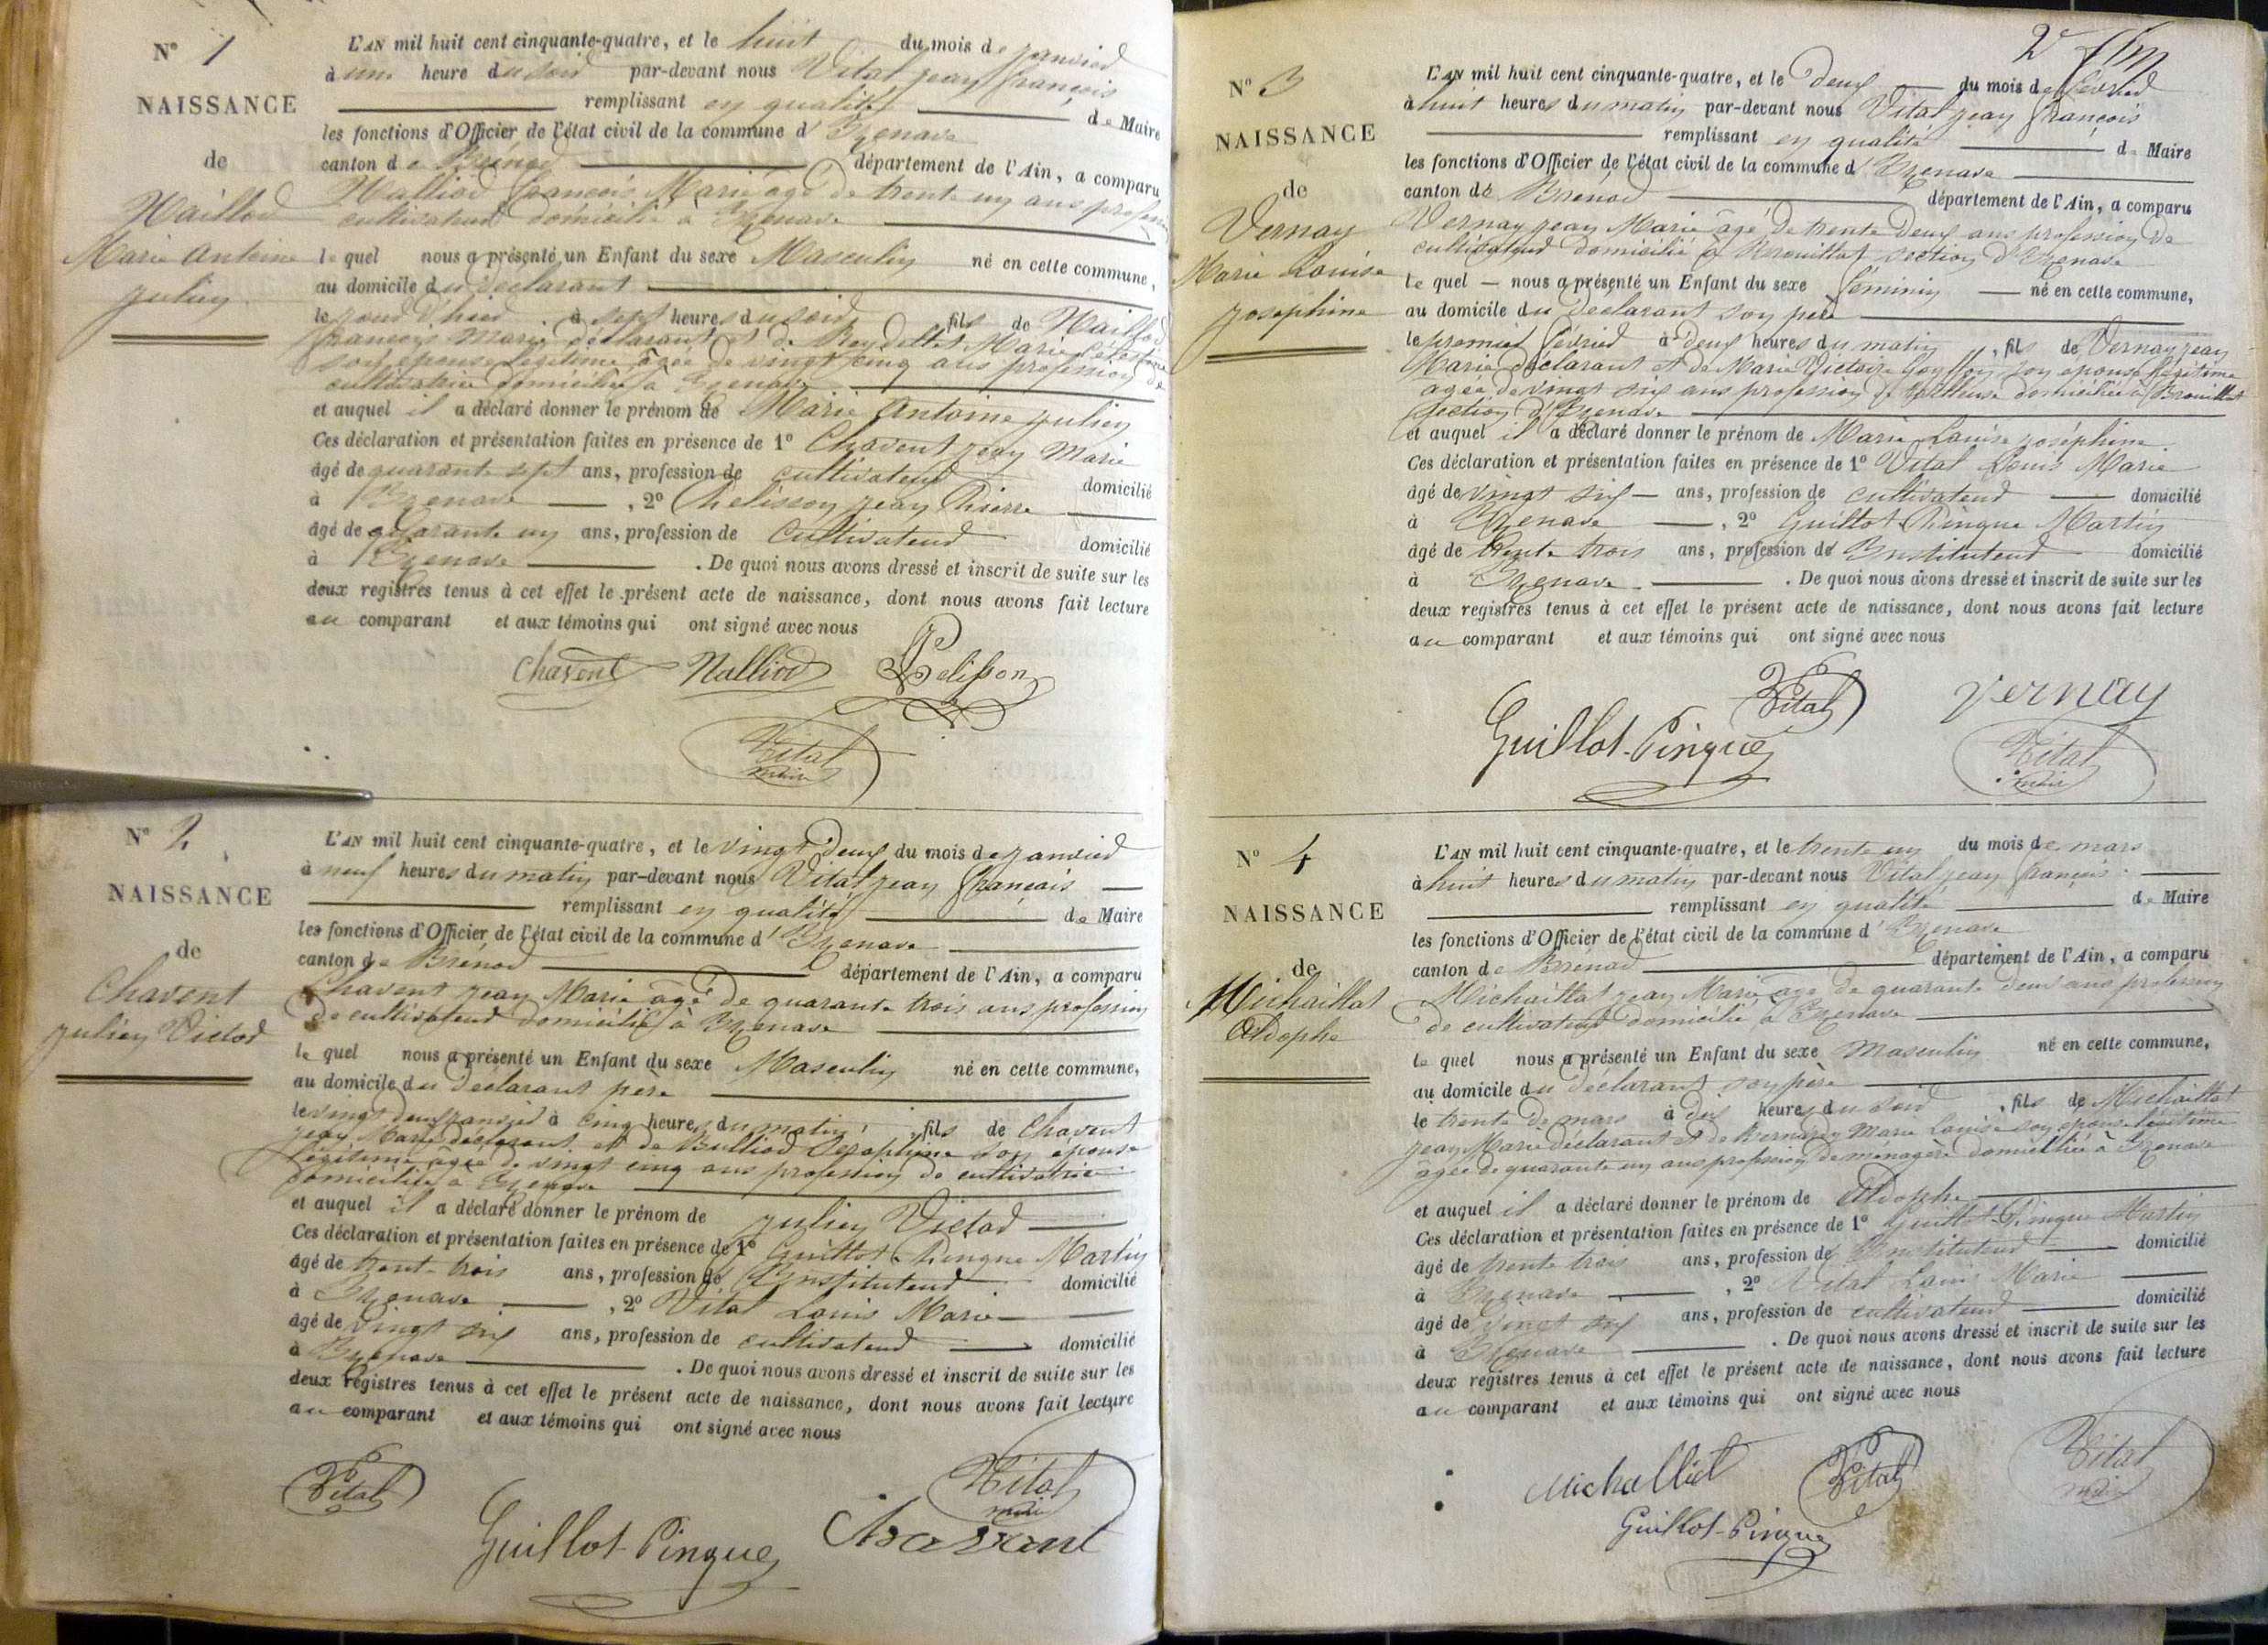 N° 1
NAISSANCE
de
Nalliod
Marie Antoine
Julien
L'AN mil huit cent cinquante-quatre, et le huit du mois de janvier
à une heure du soir par-devant nous Vital jean françois
remplissant en qualité de Maire
les fonctions d'Officier de l'état civil de la commune d' Izenave
canton de Brénod département de l'Ain, a comparu
Nalliod françois Marie agé de trente un ans profession
cultivateur domicilié à Izenave
le quel nous a présenté un Enfant du sexe Masculin né en cette commune,
au domicile du déclarant
le jour d'hier à sept heures du soir fils de Nalliod
françois Marie déclarant et de Reydellet Marie
son épouse légitime âgée de vingt cinq ans profession de
cultivatrice domiciliée à Izenave
et auquel il a déclaré donner le prénom de Marie Antoine julien
Ces déclaration et présentation faites en présence de 1° Chavent jean Marie
âgé de quarante sept ans, profession de cultivateur domicilié
à Izenave , 2° Pelisson jean Pierre
âgé de quarante un ans, profession de cultivateur domicilié
à Izenave . De quoi nous avons dressé et inscrit de suite sur les
deux registres tenus à cet effet le présent acte de naissance, dont nous avons fait lecture
au comparant et aux témoins qui ont signé avec nous
Chavent Nalliod Pelisson
Vital
maire
N° 2
NAISSANCE
de
Chavent
Julien Victor
L'AN mil huit cent cinquante-quatre, et le vingt deux du mois de janvier
à neuf heures du matin par-devant nous Vital jean françois
remplissant en qualité de Maire
les fonctions d'Officier de l'état civil de la commune d' Izenave
canton de Brénod département de l'Ain, a comparu
Chavent jean Marie âgé de quarante trois ans profession
de cultivateur domicilié à Izenave
le quel nous a présenté un Enfant du sexe Masculin né en cette commune,
au domicile du déclarant père
le vingt deux janvier à cinq heures du matin , fils de Chavent
jean Marie déclarant et de Bulliod Séraphine son épouse
légitime âgée de vingt cinq ans profession de cultivatrice
domiciliée à Izenave
et auquel il a déclaré donner le prénom de julien Victor
Ces déclaration et présentation faites en présence de 1° Guillot-Pingue Martin
âgé de trente trois ans, profession de Instituteur domicilié
à Izenave , 2° Vital Louis Marie
âgé de vingt six ans, profession de cultivateur domicilié
à Izenave . De quoi nous avons dressé et inscrit de suite sur les
deux registres tenus à cet effet le présent acte de naissance, dont nous avons fait lecture
au comparant et aux témoins qui ont signé avec nous
Vital Guillot-Pingue Chavant
Vital
maire
2e
N° 3
NAISSANCE
de
Vernay
Marie Louise
Josephine
L'AN mil huit cent cinquante-quatre, et le deux du mois de février
à huit heures du matin par-devant nous Vital jean françois
remplissant en qualité de Maire
les fonctions d'Officier de l'état civil de la commune d' Izenave
canton de Brénod département de l'Ain, a comparu
Vernay jean Marie âgé de trente deux ans profession de
cultivateur domicilié à section d'Izenave
le quel nous a présenté un Enfant du sexe féminin né en cette commune,
au domicile du déclarant son père
le premier février à deux heures du matin , fil de Vernay jean
Marie déclarant et de Marie Victoire son épouse légitime
agée de vingt six ans profession de tailleuse domiciliée à
section d'Izenave
et auquel il a déclaré donner le prénom de Marie Louise joséphine
Ces déclaration et présentation faites en présence de 1° Vital Louis Marie
âgé de vingt six ans, profession de cultivateur domicilié
à Izenave , 2° Guillot-Pingue Martin
âgé de trente trois ans, profession de Instituteur domicilié
à Izenave . De quoi nous avons dressé et inscrit de suite sur les
deux registres tenus à cet effet le présent acte de naissance, dont nous avons fait lecture
au comparant et aux témoins qui ont signé avec nous
Vital Vernay
Guillot-Pingue Vital
maire
N° 4
NAISSANCE
de
Michaillat
Aldophe
L'AN mil huit cent cinquante-quatre, et le trente un du mois de mars
à huit heures du matin par-devant nous Vital jean françois
remplissant en qualité de Maire
les fonctions d'Officier de l'état civil de la commune d' Izenave
canton de Brénod département de l'Ain, a comparu
Michaillat jean Marie agé de quarante deux ans profession
de cultivateur domicilié à Izenave
le quel nous a présenté un Enfant du sexe Masculin né en cette commune,
au domicile du déclarant son père
le trente de mars à dix heures du soir , fils de Michaillat
jean Marie déclarant et de Marie Louise son épouse légitime
âgée de quarante un ans profession de ménagère domiciliée à Izenave
et auquel il a déclaré donner le prénom de Aldophe
Ces déclaration et présentation faites en présence de 1° Guillot-Pingue Martin
âgé de trente trois ans, profession de Instituteur domicilié
à Izenave , 2° Vital Louis Marie
âgé de vingt six ans, profession de cultivateur domicilié
à Izenave . De quoi nous avons dressé et inscrit de suite sur les
deux registres tenus à cet effet le présent acte de naissance, dont nous avons fait lecture
au comparant et aux témoins qui ont signé avec nous
Michalliet Vital Vital
maire
Guillot-Pingue